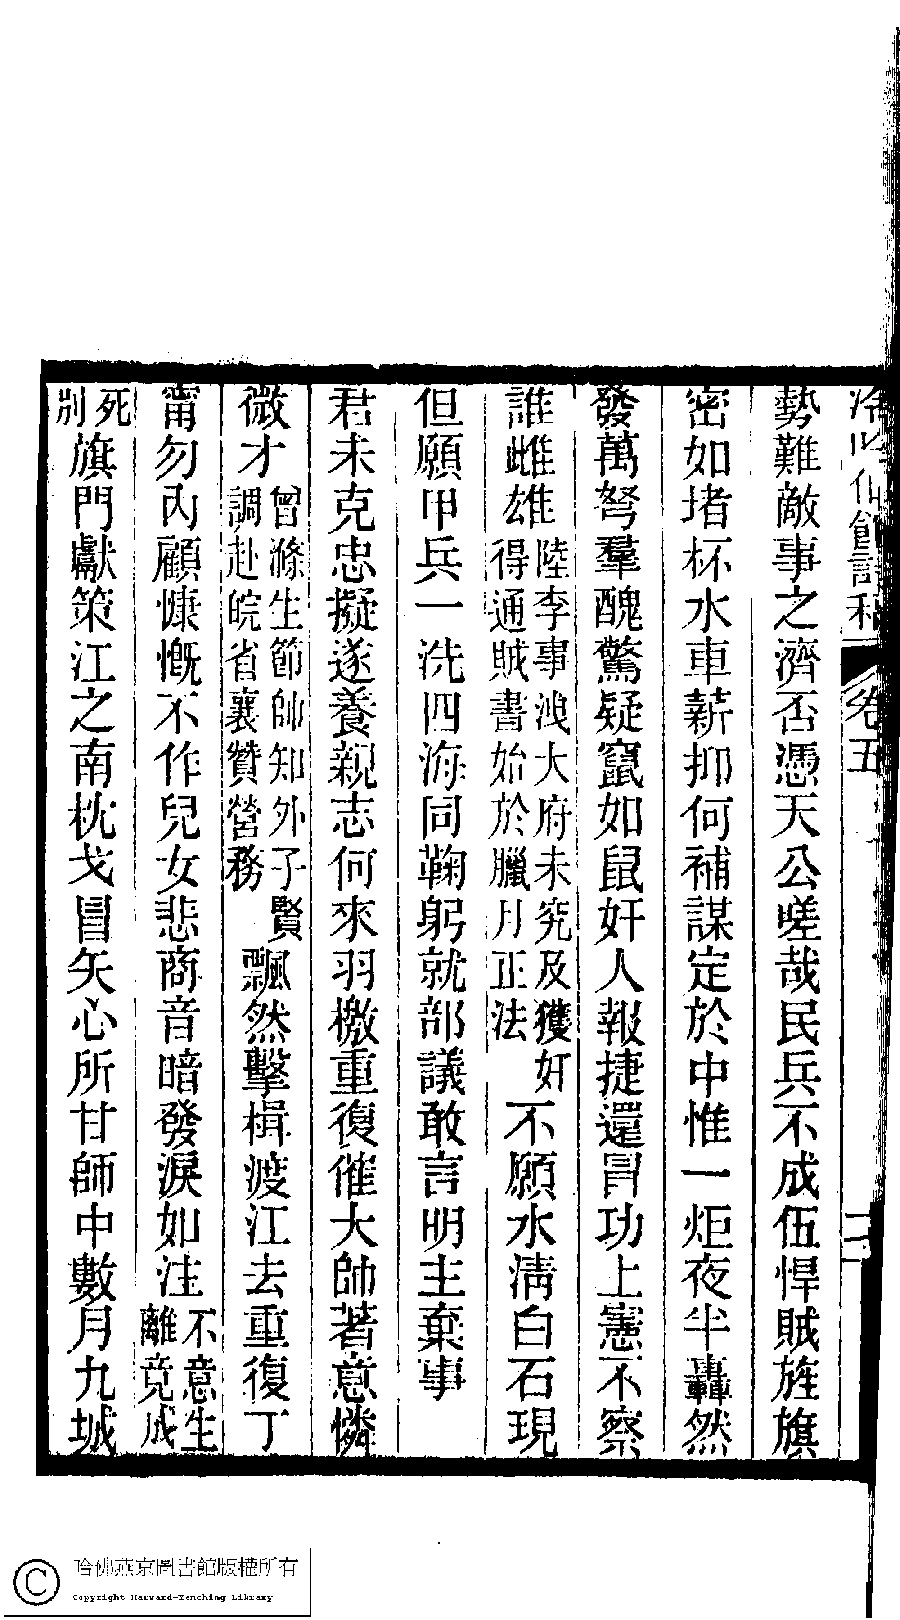 冷吟仙館詩稿 卷五
勢難敵事之濟否憑天公嗟哉民兵不成伍悍賊旌旗
密如堵杯水車薪抑何補謀定於中惟一炬夜半轟然
發萬弩羣醜驚疑竄如鼠奸人報捷還冒功上憲不察
誰雌雄陸李事洩大府未究及獲奸得通賊書始於臘月正法不願水清白石現
但願甲兵一洗四海同鞠躬就部議敢言明主棄事
君未克忠擬遂養親志何來羽檄重復催大帥著意憐
微才曾滌生節帥知外子賢調赴皖省襄贊營務飄然擊楫渡江去重復丁
甯勿內顧慷慨不作兒女悲商音暗發淚如注不意生離竟成
死別旗門獻策江之南枕戈冒矢心所甘師中數月九城
哈佛燕京圖書館版權所有
Copyright Harvard-Yenching Library